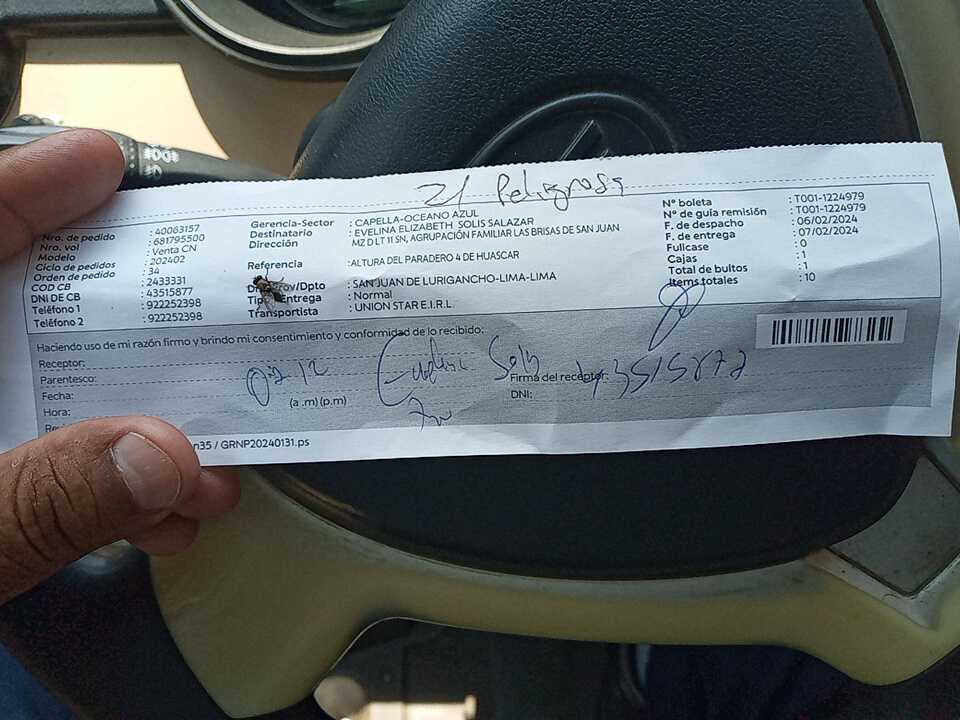 21 Peligrosa
Nro. de pedido : 40063157
Nro. vol : 681795500
Modelo : Venta CN
Ciclo de pedidos : 202402
Orden de pedido : 34
COD CB : 2433331
DNI DE CB : 43515877
Teléfono 1 : 922252398
Teléfono 2 : 922252398
Gerencia-Sector : CAPELLA-OCEANO AZUL
Destinatario : EVELINA ELIZABETH SOLIS SALAZAR
Dirección : MZ D LT 11 SN, AGRUPACIÓN FAMILIAR LAS BRISAS DE SAN JUAN
Referencia : ALTURA DEL PARADERO 4 DE HUASCAR
/Dpto : SAN JUAN DE LURIGANCHO-LIMA-LIMA
Entrega : Normal
Transportista : UNION STAR E.I.R.L.
Nº boleta : T001-1224979
Nº de guía remisión : T001-1224979
F. de despacho : 06/02/2024
F. de entrega : 07/02/2024
Fullcase : 0
Cajas : 1
Total de bultos : 1
Items totales : 10
Haciendo uso de mi razón firmo y brindo mi consentimiento y conformidad de lo recibido:
Receptor:
Parentesco:
Fecha:
Hora: (a .m) (p.m)
Solis
Firma del receptor:
DNI: 43515877
n35 / GRNP20240131.ps